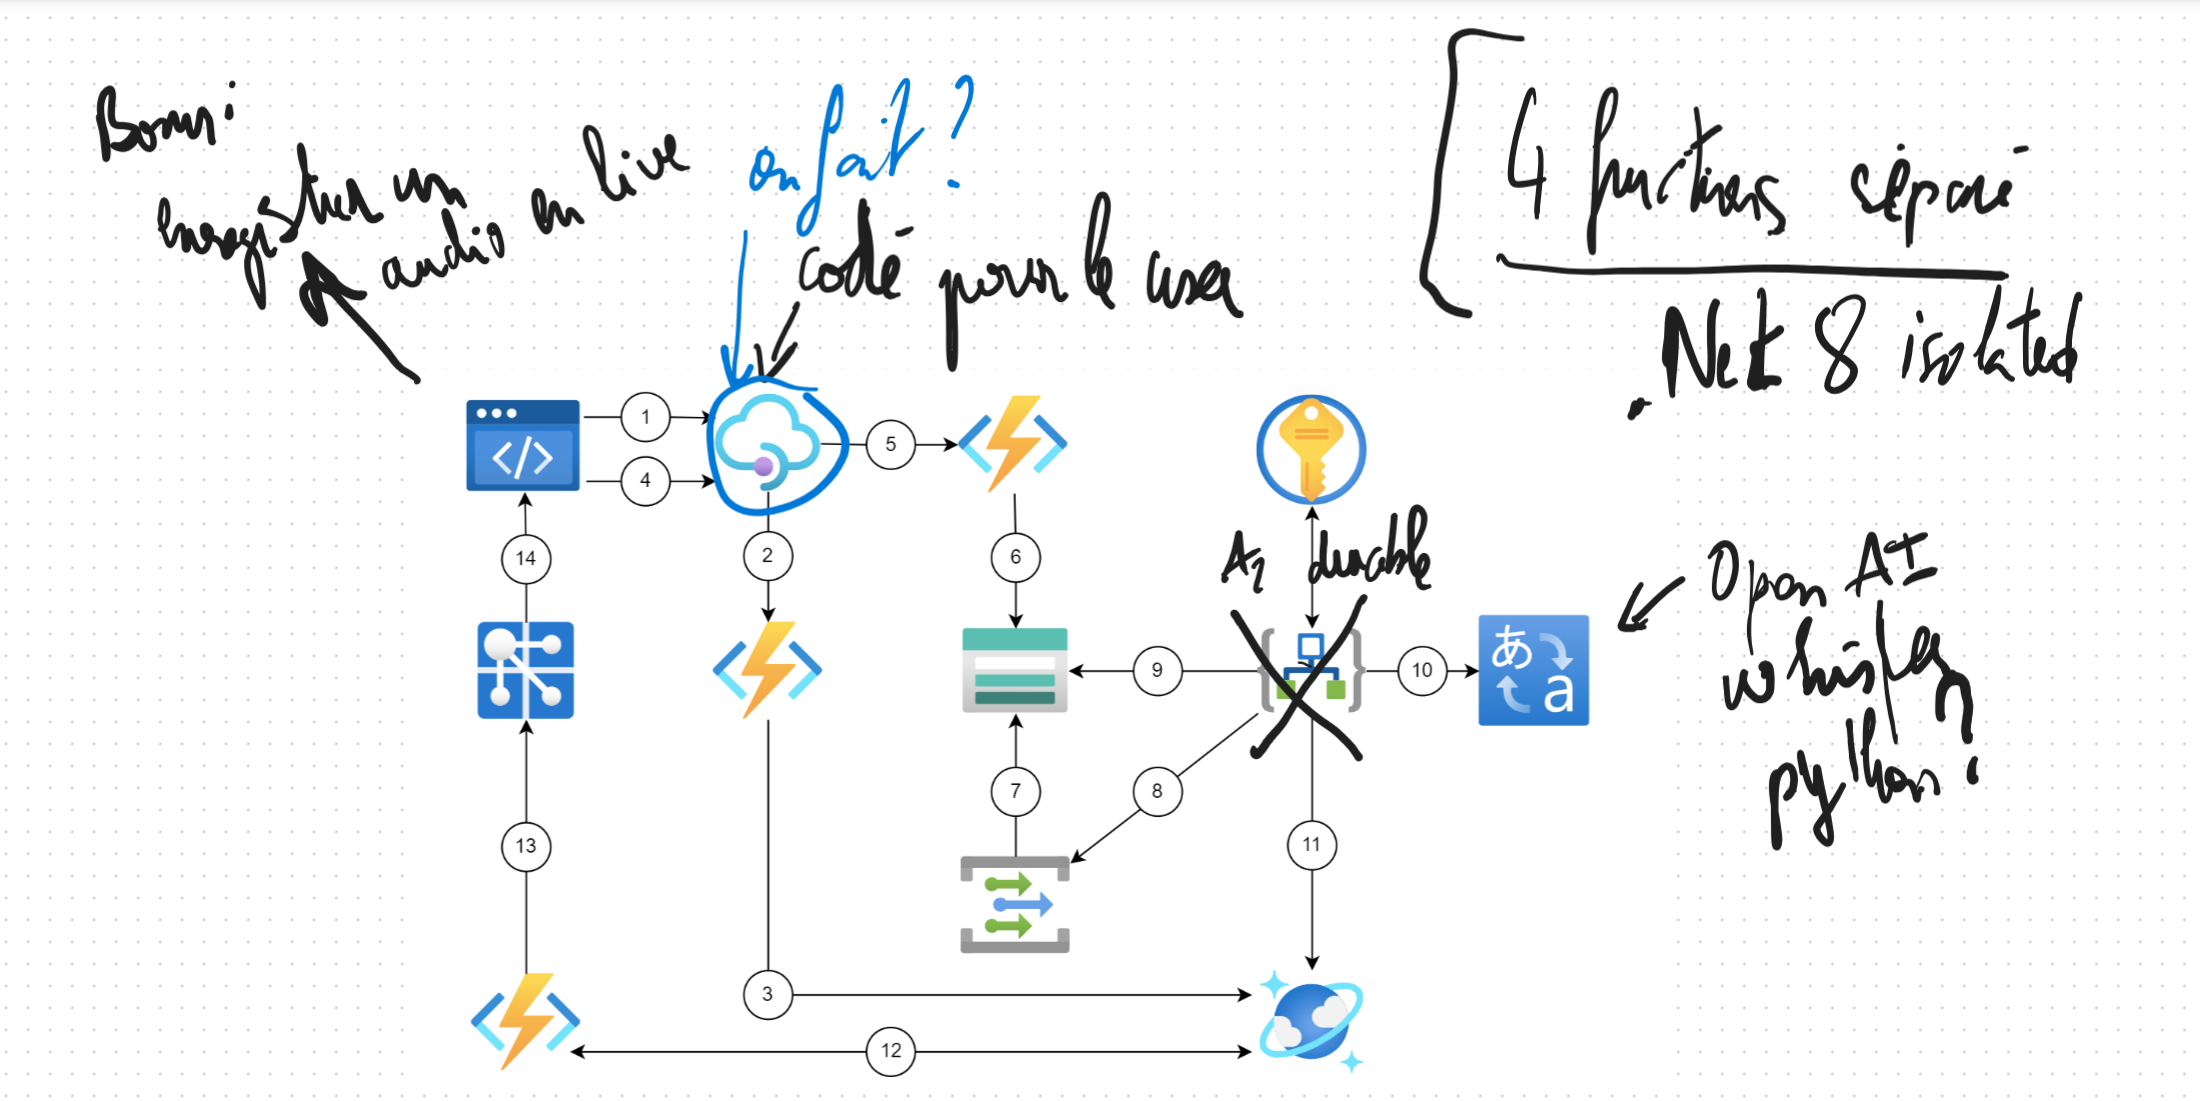 Bonus:
enregistrer un
audio en live
on fait ?
codé pour le user
4 functions séparé
.Net 8 isolated
1
4
5
2
6
14
Az durable
Open AI
whisper
python ?
あ
a
9
10
7
8
13
11
3
12